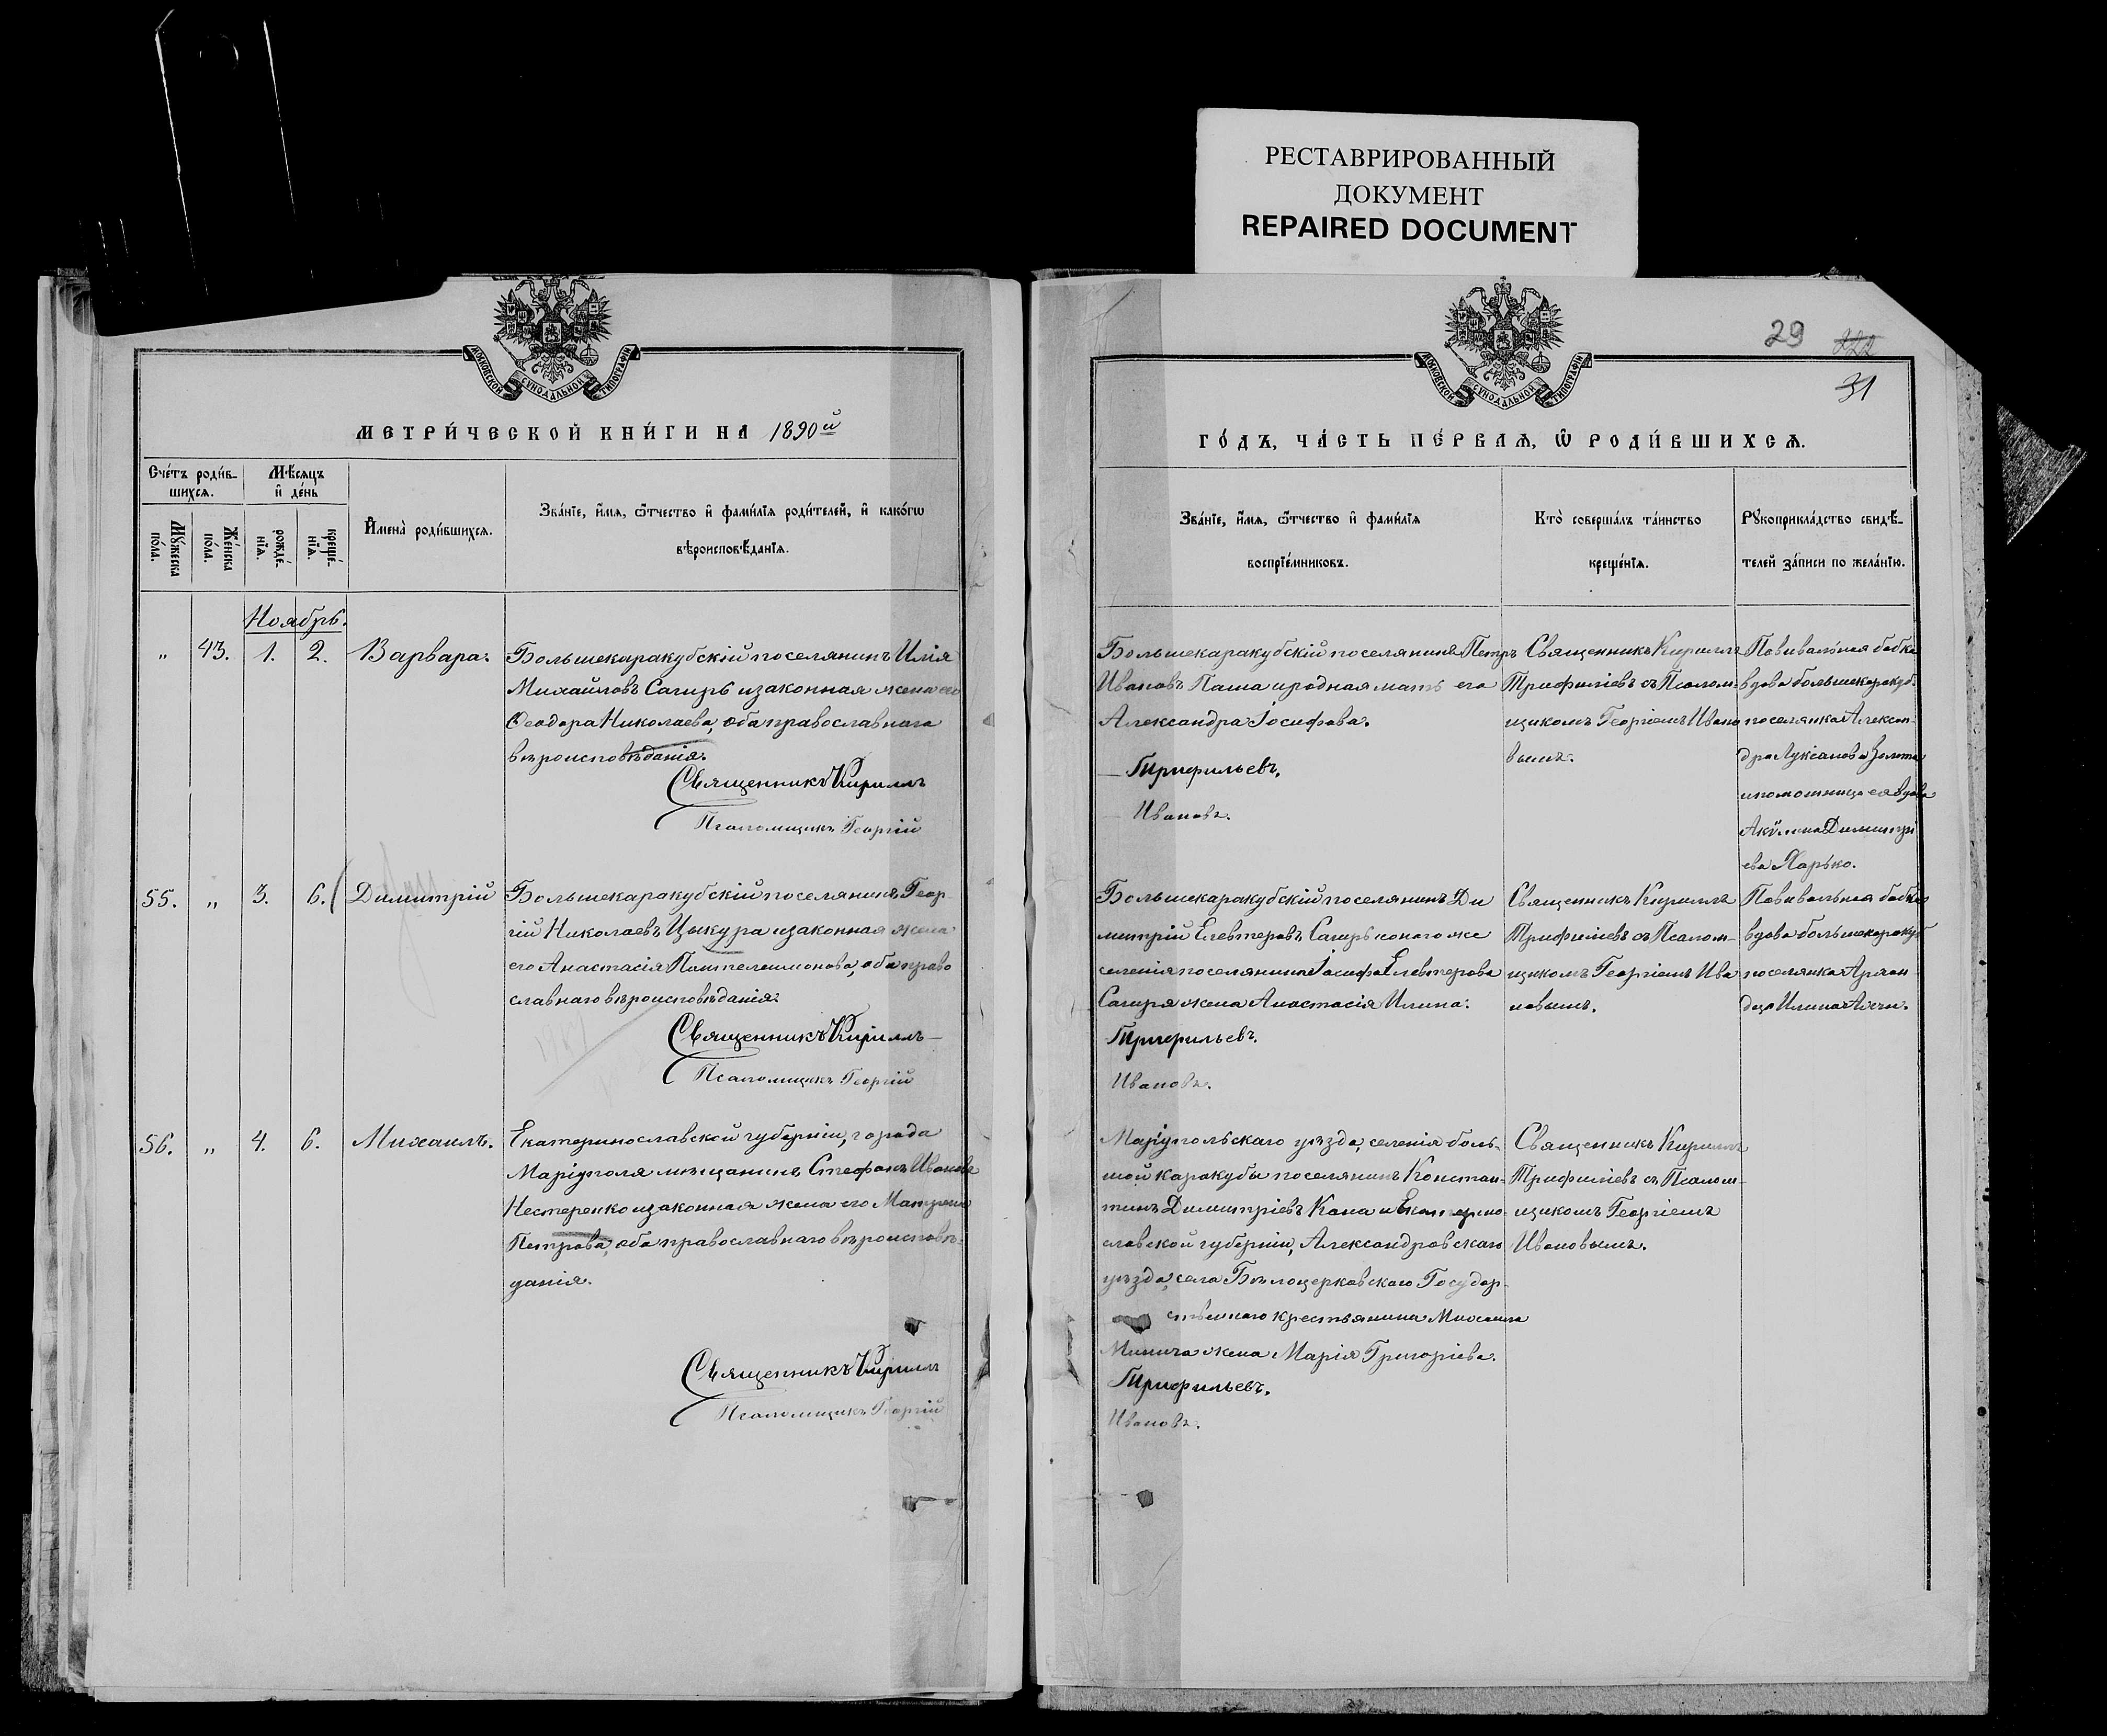 РЕСТАВРИРОВАННЫЙ
ДОКУМЕНТ
REPAIRED DOCUMENT
МОСКОВСКОЙ СѴНОДАЛЬНОЙ ТИПОГРАФІИ
МЕТРИ́ЧЕСКОЙ КНИ́ГИ НА 1890й
Сче́тъ роди́в-
шихсѧ.
Мѣ́сѧцъ
и҆ де́нь
Мꙋ́жеска
по́ла.
Же́нска
по́ла.
рожде́-
нїѧ.
креще́-
нїѧ.
И҆мена̀ роди́вшихсѧ.
Зва́нїе, и҆́мѧ, ѻ҆́тчество и҆ фами́лїѧ роди́телей, и҆ како́гѡ
вѣроисповѣ́данїѧ.
Ноябрь.
„ 43. 1. 2. Варвара.
Большекаракубскій поселянинъ Илія
Михайловъ Сагирь и законная жена его
Ѳеодора Николаева, оба православнаго
вѣроисповѣданія.
Священникъ Кириллъ
Псаломщикъ Георгій
55. „ 3. 6. Димитрій
Большекаракубскій поселянинъ Геор-
гій Николаевъ Цыкура и законная жена
его Анастасія Пантелеимонова, оба право
славнаго вѣроисповѣданія.
Священникъ Кириллъ
Псаломщикъ Георгій
56. „ 4. 6. Михаилъ.
Екатеринославской губерніи, города
Маріуполя мѣщанинъ Стефанъ Ивановъ
Нестеренко и законная жена его Матрона
Петрова, оба православнаго вѣроисповѣ-
данія.
Священникъ Кириллъ
Псаломщикъ Георгій
29 222
31
МОСКОВСКОЙ СѴНОДАЛЬНОЙ ТИПОГРАФІИ
ГО́ДЪ, ЧА́СТЬ ПЕ́РВАѦ, Ѡ҆ РОДИ́ВШИХСѦ.
Зва́нїе, и҆́мѧ, ѻ҆́тчество и҆ фами́лїѧ
воспрїе́мниковъ.
Кто̀ соверша́лъ та́инство
креще́нїѧ.
Рꙋкоприкла́дство свидѣ́-
телей за́писи по жела́нїю.
Большекаракубскій поселянинъ Петръ
Ивановъ Паша и родная мать его
Александра Іосифова.
Трифильевъ.
Ивановъ.
Священникъ Кириллъ
Трифиліевъ съ Псалом-
щикомъ Георгіемъ Ивано
вымъ.
Повивальная бабка
вдова большекаракуб.
поселянка Алексан-
дра Луксанова Золота
и помощница ея вдова
Акулина Димитрі
ева Харько.
Большекаракубскій поселянинъ Ди
митрій Елевтеровъ Сагирь и оного же
селенія поселянина Іосифа Елевтерова
Сагиря жена Анастасія Илина.
Трифильевъ.
Ивановъ.
Священникъ Кириллъ
Трифиліевъ съ Псалом-
щикомъ Георгіемъ Ива
новымъ.
Повивальная бабка
вдова большекаракуб
поселянка
Илина
Маріупольскаго уѣзда, селенія боль-
шой каракубы поселянинъ Констан-
тинъ Димитріевъ Капа и Екатерино-
славской губерніи, Александровскаго
уѣзда, села Бѣлоцерковскаго Государ-
ственнаго крестьянина Михаила
Минича жена Марія Григоріева.
Трифильевъ.
Ивановъ.
Священникъ Кириллъ
Трифиліевъ съ Псалом-
щикомъ Георгіемъ
Ивановымъ.